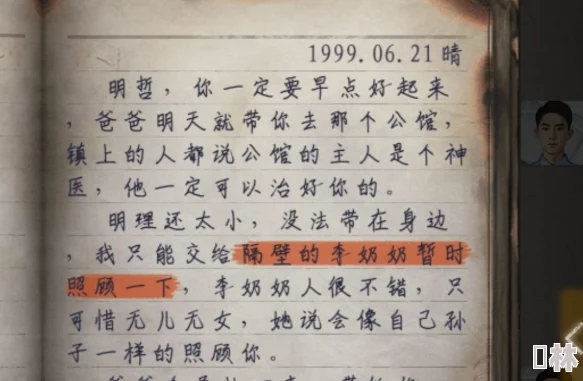 1999.06.21 晴
明哲，你一定要早点好起来
，爸爸明天就带你去那个公馆，
镇上的人都说公馆的主人是个神
医，他一定可以治好你的。
明理还太小，没法带在身边
，我只能交给隔壁的李奶奶暂时
照顾一下，李奶奶人很不错，只
可惜无儿无女，她说会像自己孙
子一样的照顾你。
林